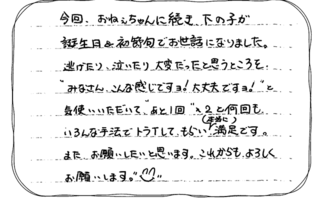 今回、おねぇちゃんに続き、下の子が
誕生日&初節句でお世話になりました。
逃げたり、泣いたり、大変だったと思うところを、
"みなさん、こんな感じですョ!大丈夫ですョ!"と
気使いいただいて、"あと1回"×2と何回も
いろんな手法でトライして(本当に)もらい!満足です。
また、お願いしたいと思います。これからも、よろしく
お願いします。"